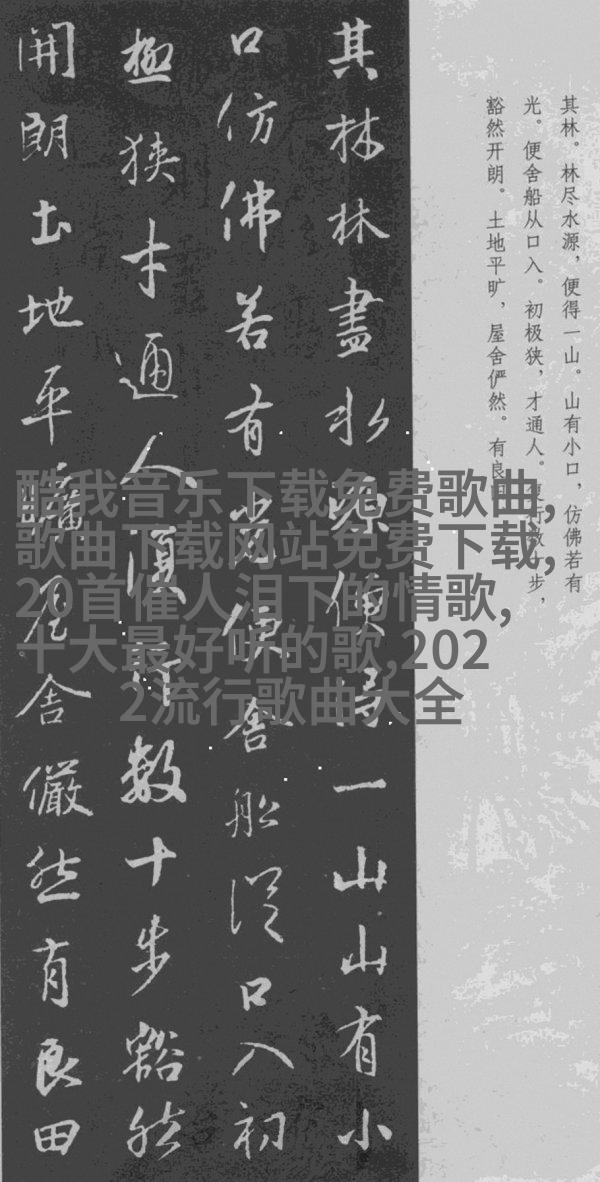 其林。林尽水源，便得一山。山有小口，仿佛若有
光。便舍船从口入。初极狭，才通人。复行数十步，
豁然开朗。土地平旷，屋舍俨然。有良
其林林盡水源便得一山山有小
口仿佛若有光便舍船從口入初
極狹才通人復行數十步豁然
開朗土地平曠屋舍儼然有良田
酷我音乐下载免费歌曲,
歌曲下载网站免费下载,
20首催人泪下的情歌,
十大最好听的歌,202
2流行歌曲大全